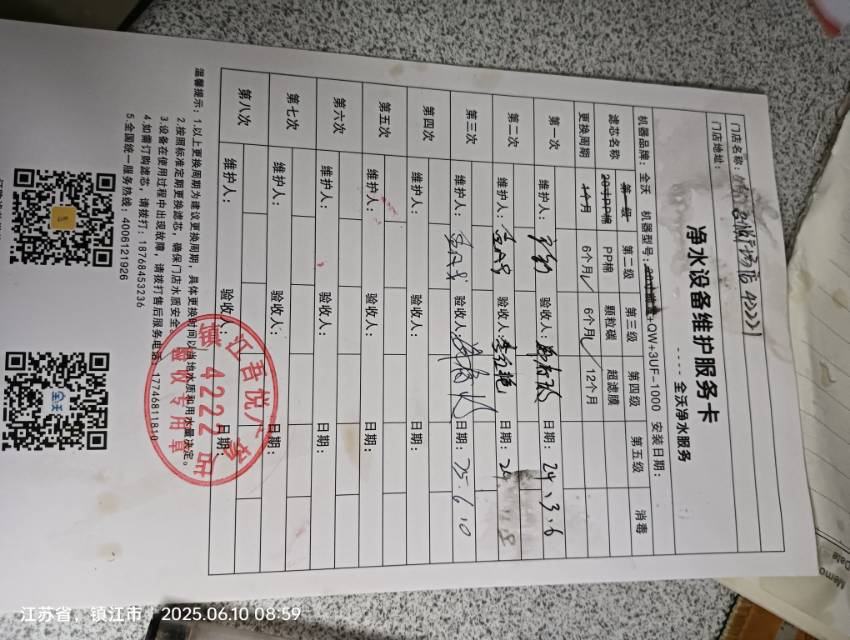 净水设备维护服务卡
----全沃净水服务
门店名称: 42221
门店地址:
机器品牌: 全沃 机器型号: +QW+3UF-1000 安装日期:
滤芯名称 第一级 第二级 第三级 第四级 第五级 消毒
20寸PP棉 PP棉 颗粒碳 超滤膜
更换周期 1个月 6个月✓ 6个月✓ 12个月
第一次 维护人: 验收人: 日期: 24.3.6
第二次 维护人: 验收人: 日期: 24 8
第三次 维护人: 验收人: 日期: 25.6.10
第四次 维护人: 验收人: 日期:
第五次 维护人: 验收人: 日期:
第六次 维护人: 验收人: 日期:
第七次 维护人: 验收人: 日期:
第八次 维护人: 验收人: 日期:
温馨提示: 1.以上更换周期为建议更换周期, 具体更换时间以当地水质和用水量决定。
2.按照标准定期更换滤芯, 确保门店水质安全。
3.设备在使用过程中出现故障, 请拨打售后服务电话: 17746811810
4.如需订购滤芯, 请拨打: 18768453236
5.全国统一服务热线: 4006121926
镇江吾悦广场店
4222
验收专用章
全沃
Memo
Date
江苏省, 镇江市 2025.06.10 08:59